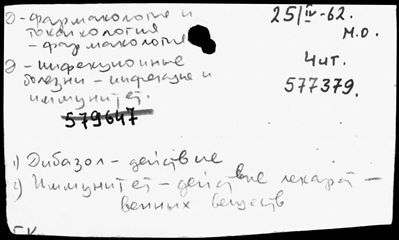 Ɔ - фармакология и
токсикология
- фармакология
Ɔ - инфекционные
болезни - инфекция и
иммунитет.
579647
25/IV-62.
М.О.
Чит.
577379.
1) Дибазол - действие
2) Иммунитет - действие лекарст-
венных веществ